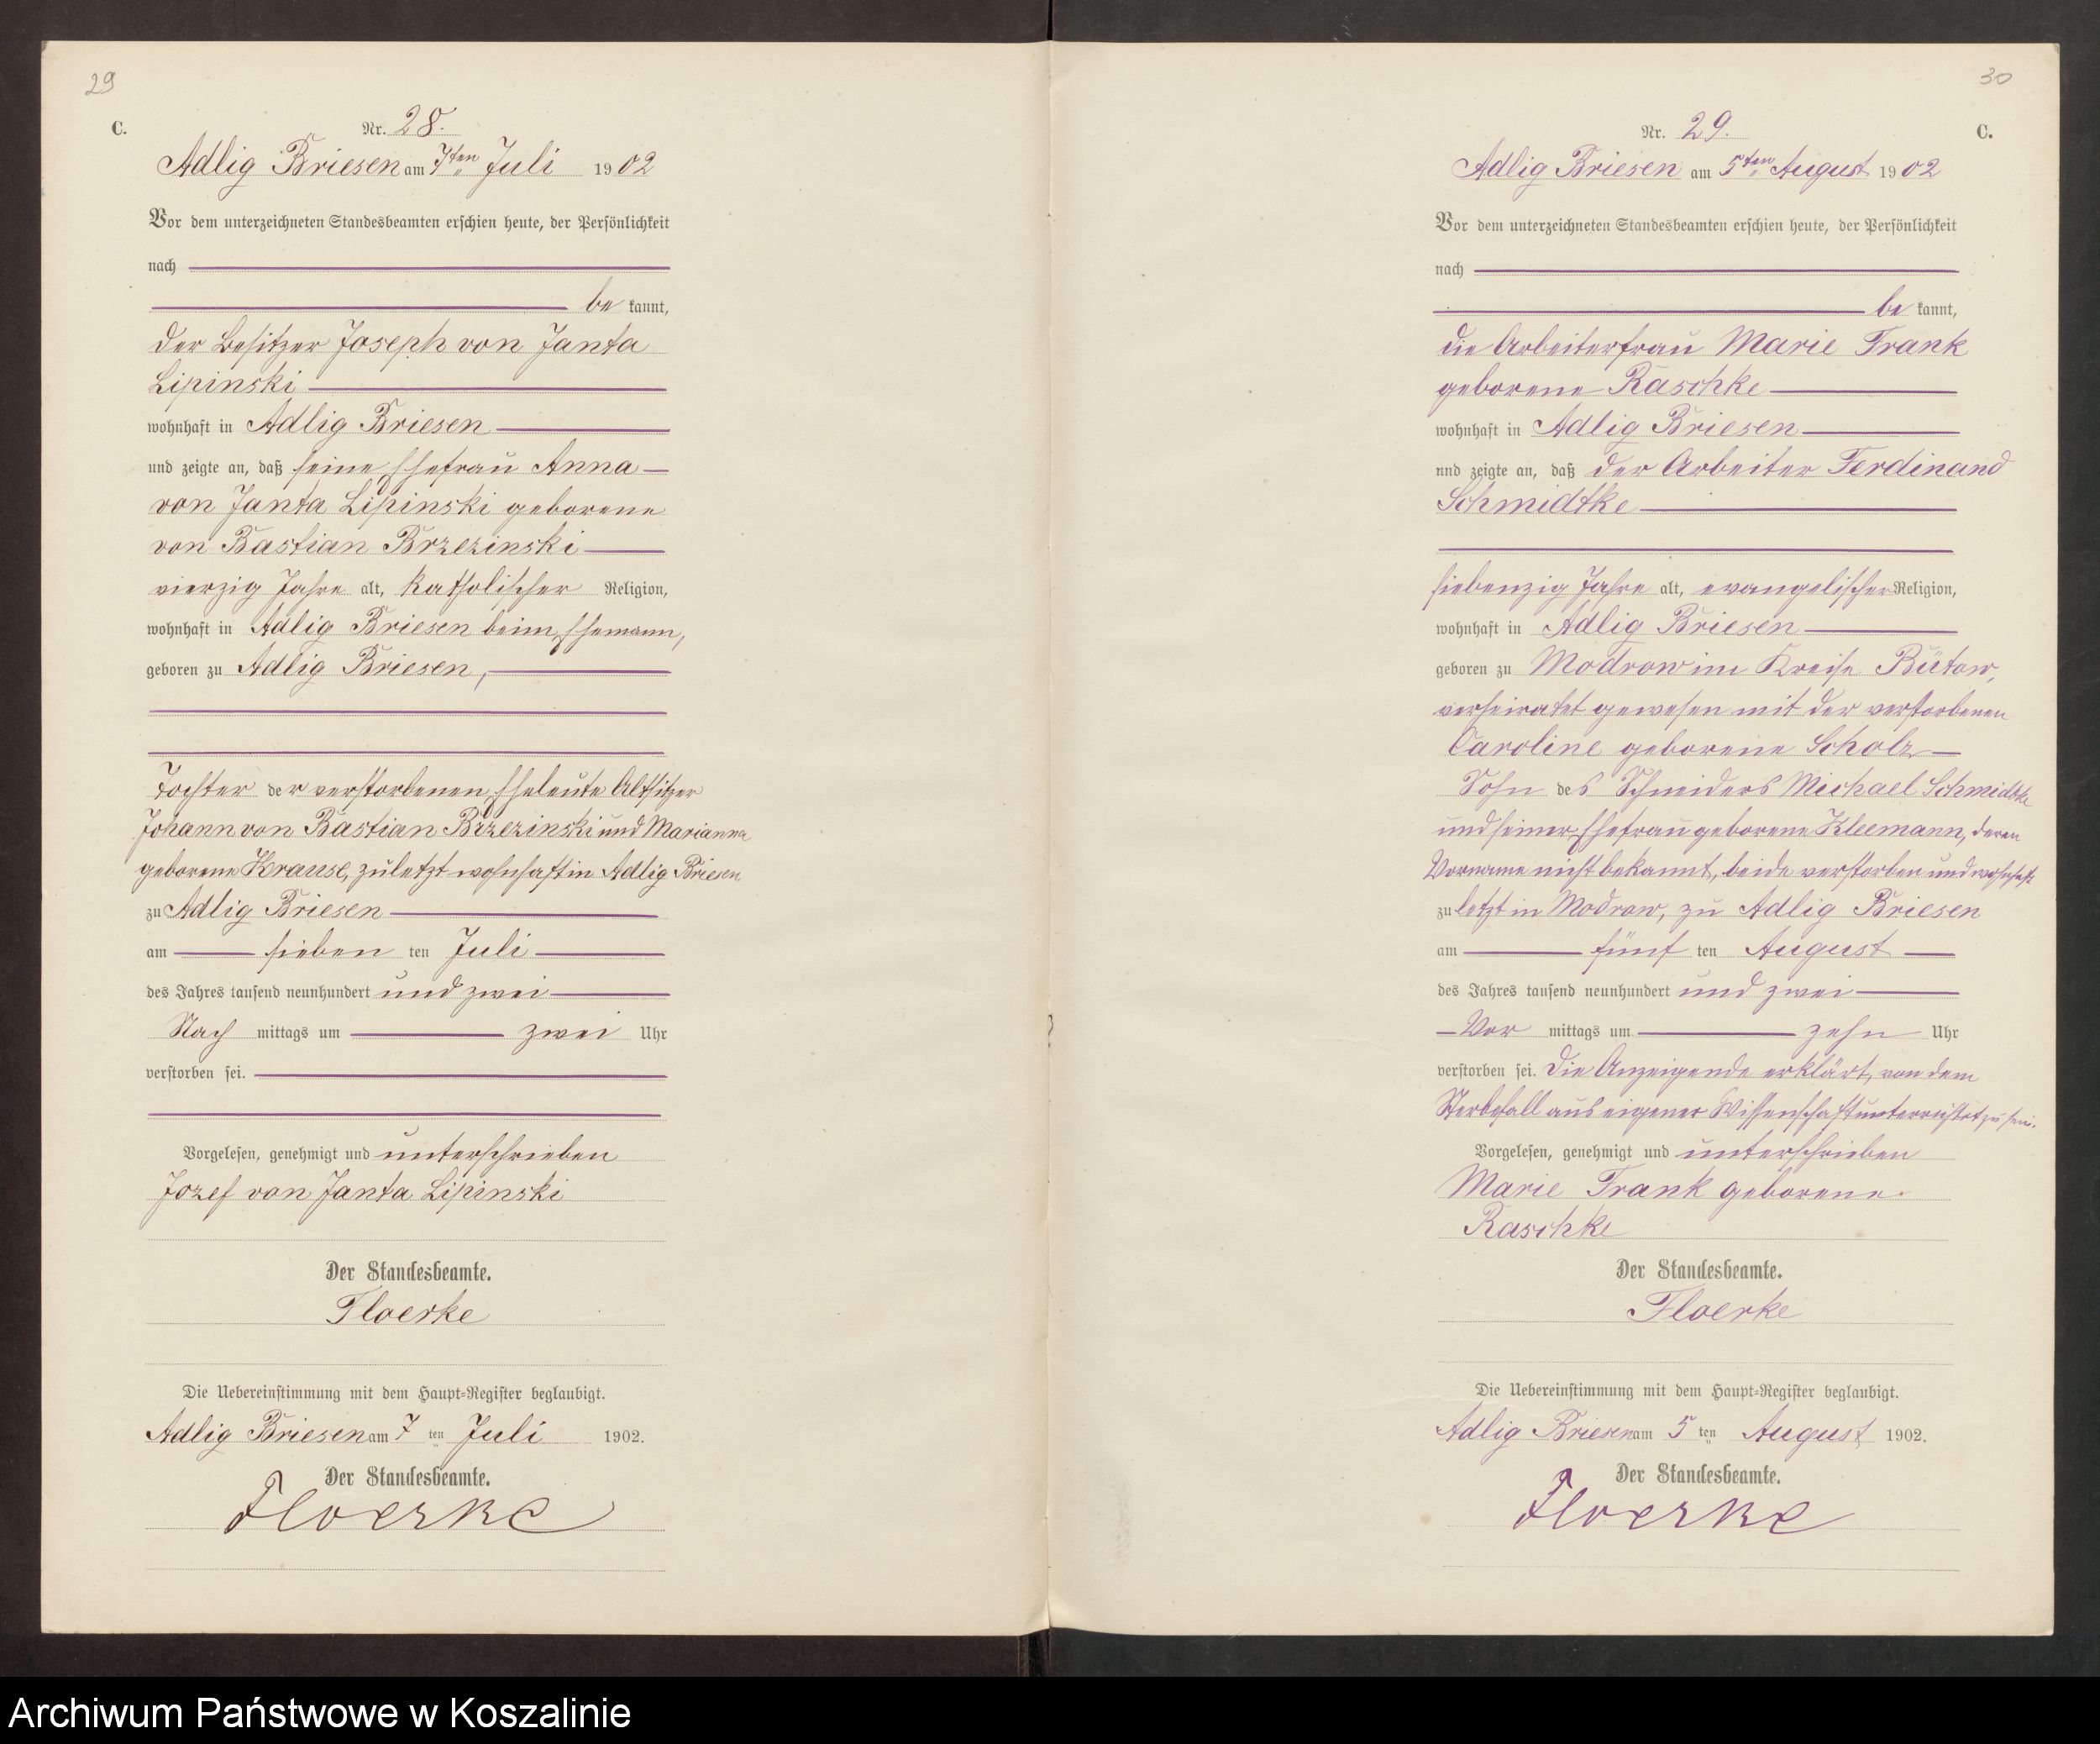 29
C.
Nr. 28.
Adlig Briesen am 7ten Juli 1902
Vor dem unterzeichneten Standesbeamten erschien heute, der Persönlichkeit
nach
be kannt,
der Besitzer Joseph von Janta
Lipinski
wohnhaft in Adlig Briesen
und zeigte an, daß seine Ehefrau Anna
von Janta Lipinski geborene
von Bastian Brzezinski
vierzig Jahre alt, katholischer Religion,
wohnhaft in Adlig Briesen beim Ehemann,
geboren zu Adlig Briesen,
Tochter der verstorbenen Eheleute Altsitzer
Johann von Bastian Brzezinski und Marianna
geborene Krause, zuletzt wohnhaft in Adlig Briesen
zu Adlig Briesen
am sieben ten Juli
des Jahres tausend neunhundert und zwei
Nach mittags um zwei Uhr
verstorben sei.
Vorgelesen, genehmigt und unterschrieben
Jozef von Janta Lipinski
Der Standesbeamte.
Floerke
Die Uebereinstimmung mit dem Haupt-Register beglaubigt.
Adlig Briesen am 7 ten Juli 1902.
Der Standesbeamte.
Floerke
30
C.
Nr. 29.
Adlig Briesen am 5ten August 1902
Vor dem unterzeichneten Standesbeamten erschien heute, der Persönlichkeit
nach
be kannt,
die Arbeiterfrau Marie Frank
geborene Raschke
wohnhaft in Adlig Briesen
und zeigte an, daß der Arbeiter Ferdinand
Schmidtke
siebenzig Jahre alt, evangelischer Religion,
wohnhaft in Adlig Briesen
geboren zu Modrow im Kreise Bütow,
verheiratet gewesen mit der verstorbenen
Caroline geborene Scholz
Sohn des Schneiders Michael Schmidtke
und seiner Ehefrau geborene Kleemann, deren
Vorname nicht bekannt, beide verstorben und wohnhaft
zu letzt in Modrow, zu Adlig Briesen
am fünf ten August
des Jahres tausend neunhundert und zwei
Vor mittags um zehn Uhr
verstorben sei. Die Anzeigende erklärt, von dem
Sterbefall aus eigener Wissenschaft unterrichtet zu sein.
Vorgelesen, genehmigt und unterschrieben
Marie Frank geborene
Raschke
Der Standesbeamte.
Floerke
Die Uebereinstimmung mit dem Haupt-Register beglaubigt.
Adlig Briesen am 5 ten August 1902.
Der Standesbeamte.
Floerke
Archiwum Państwowe w Koszalinie